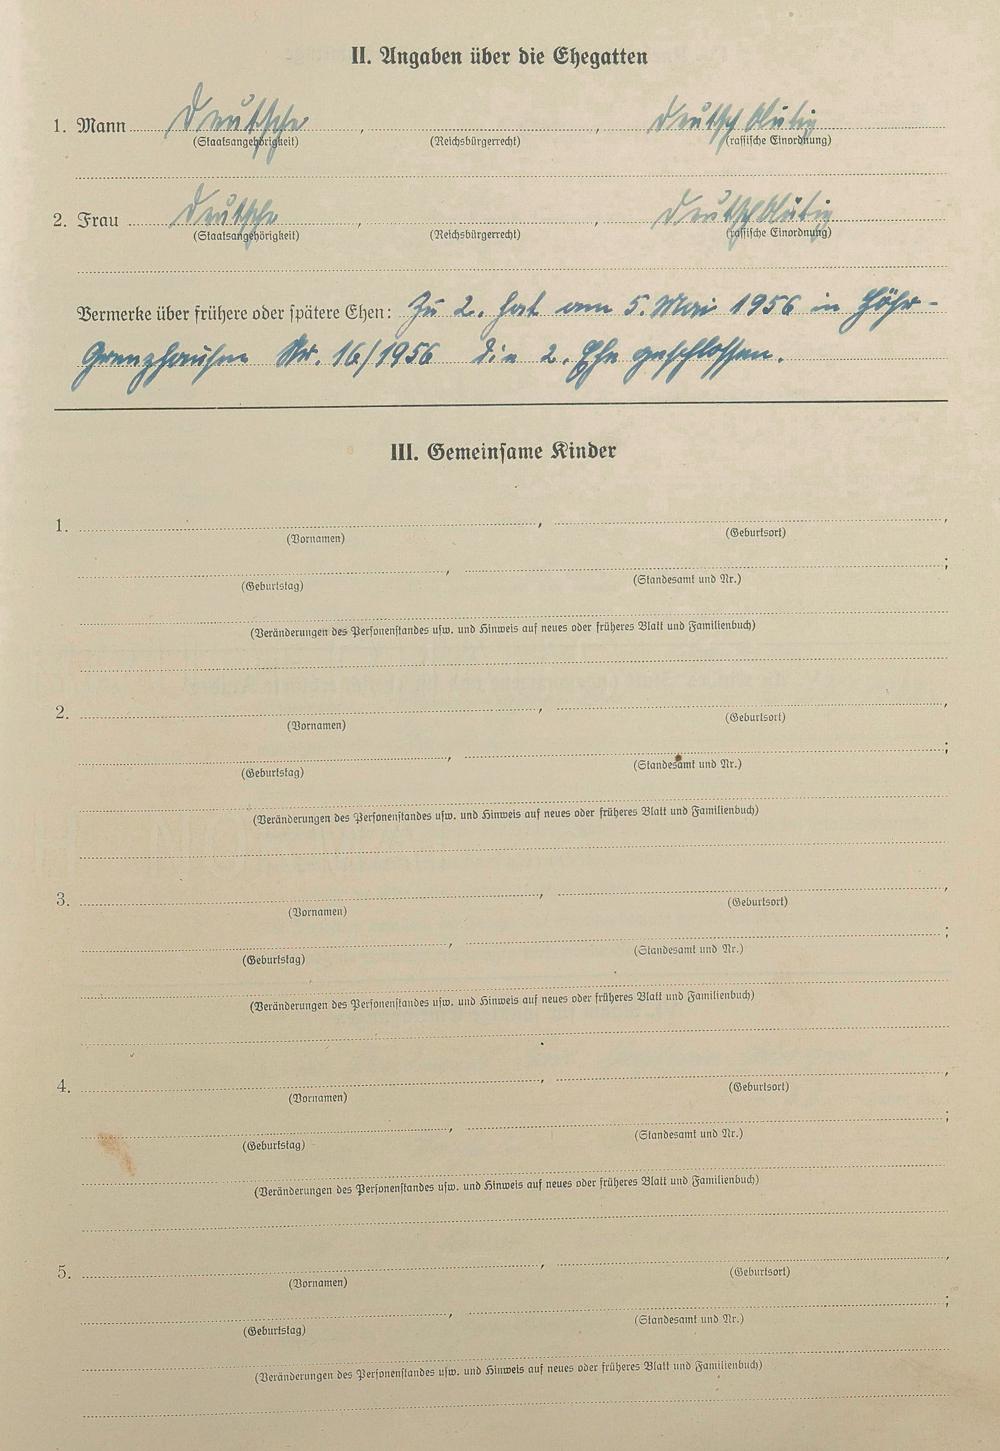 II. Angaben über die Ehegatten
1. Mann Deutsche , , deutschblütig
(Staatsangehörigkeit) (Reichsbürgerrecht) (rassische Einordnung)
2. Frau Deutsche , , deutschblütig
(Staatsangehörigkeit) (Reichsbürgerrecht) (rassische Einordnung)
Vermerke über frühere oder spätere Ehen: Zu 2. hat am 5. Mai 1956 in Höhr-
Grenzhausen Nr. 16/1956 die 2. Ehe geschlossen.
III. Gemeinsame Kinder
1. , ,
(Vornamen) (Geburtsort)
, ;
(Geburtstag) (Standesamt und Nr.)
(Veränderungen des Personenstandes usw. und Hinweis auf neues oder früheres Blatt und Familienbuch)
2. , ,
(Vornamen) (Geburtsort)
, ;
(Geburtstag) (Standesamt und Nr.)
(Veränderungen des Personenstandes usw. und Hinweis auf neues oder früheres Blatt und Familienbuch)
3. , ,
(Vornamen) (Geburtsort)
, ;
(Geburtstag) (Standesamt und Nr.)
(Veränderungen des Personenstandes usw. und Hinweis auf neues oder früheres Blatt und Familienbuch)
4. , ,
(Vornamen) (Geburtsort)
, ;
(Geburtstag) (Standesamt und Nr.)
(Veränderungen des Personenstandes usw. und Hinweis auf neues oder früheres Blatt und Familienbuch)
5. , ,
(Vornamen) (Geburtsort)
, ;
(Geburtstag) (Standesamt und Nr.)
(Veränderungen des Personenstandes usw. und Hinweis auf neues oder früheres Blatt und Familienbuch)